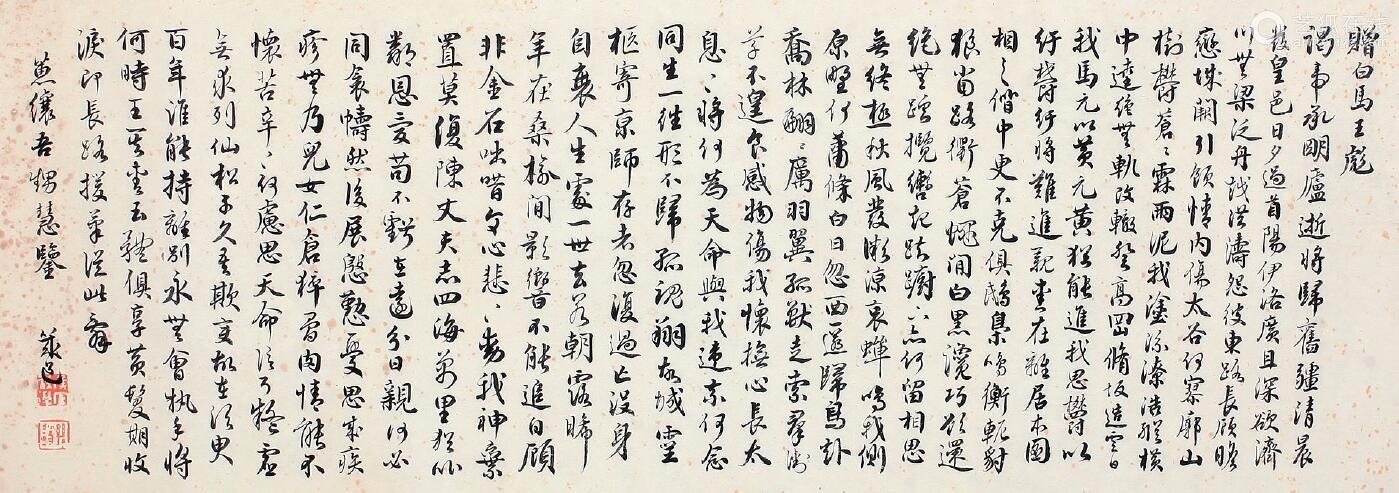 贈白馬王彪
謁帝承明廬逝將歸舊疆清晨
發皇邑日夕過首陽伊洛廣且深欲濟
川無梁泛舟越洪濤怨彼東路長顧瞻
戀城闕引領情內傷太谷何寥廓山
樹鬱蒼〻霖雨泥我塗流潦浩縱橫
中逵絕無軌改轍登高岡脩坂造雲日
我馬元以黃元黃猶能進我思鬱以
紆鬱紆將難進親愛在離居本圖
相與偕中更不克俱鴟梟鳴衡軛豺
狼當路衢蒼蠅間白黑讒巧欲還
絕無蹊攬轡起踟躕〻〻亦何留相思
無終極秋風發微涼寒蟬鳴我側
原野何蕭條白日忽西匿歸鳥赴
喬林翩〻厲羽翼孤獸走索羣銜
草不遑食感物傷我懷撫心長太
息〻將何為天命與我違奈何念
同生一往形不歸孤魂翔故城靈
柩寄京師存者忽復過亡沒身
自衰人生處一世去若朝露晞
年在桑榆間影響不能追自顧
非金石咄唶令心悲〻〻動我神棄
置莫復陳丈夫志四海萬里猶比
鄰恩愛苟不虧在遠分日親何必
同衾幬然後展慇懃憂思成疾
疹無乃兒女仁倉猝骨肉情能不
懷苦辛〻〻何慮思天命信可疑虛
無求列仙松子久吾欺變故在須臾
百年誰能持離別永無會執手將
何時王其愛玉體俱享黃髮期收
淚即長路援筆從此辭
蕙纕吾甥慧鑒